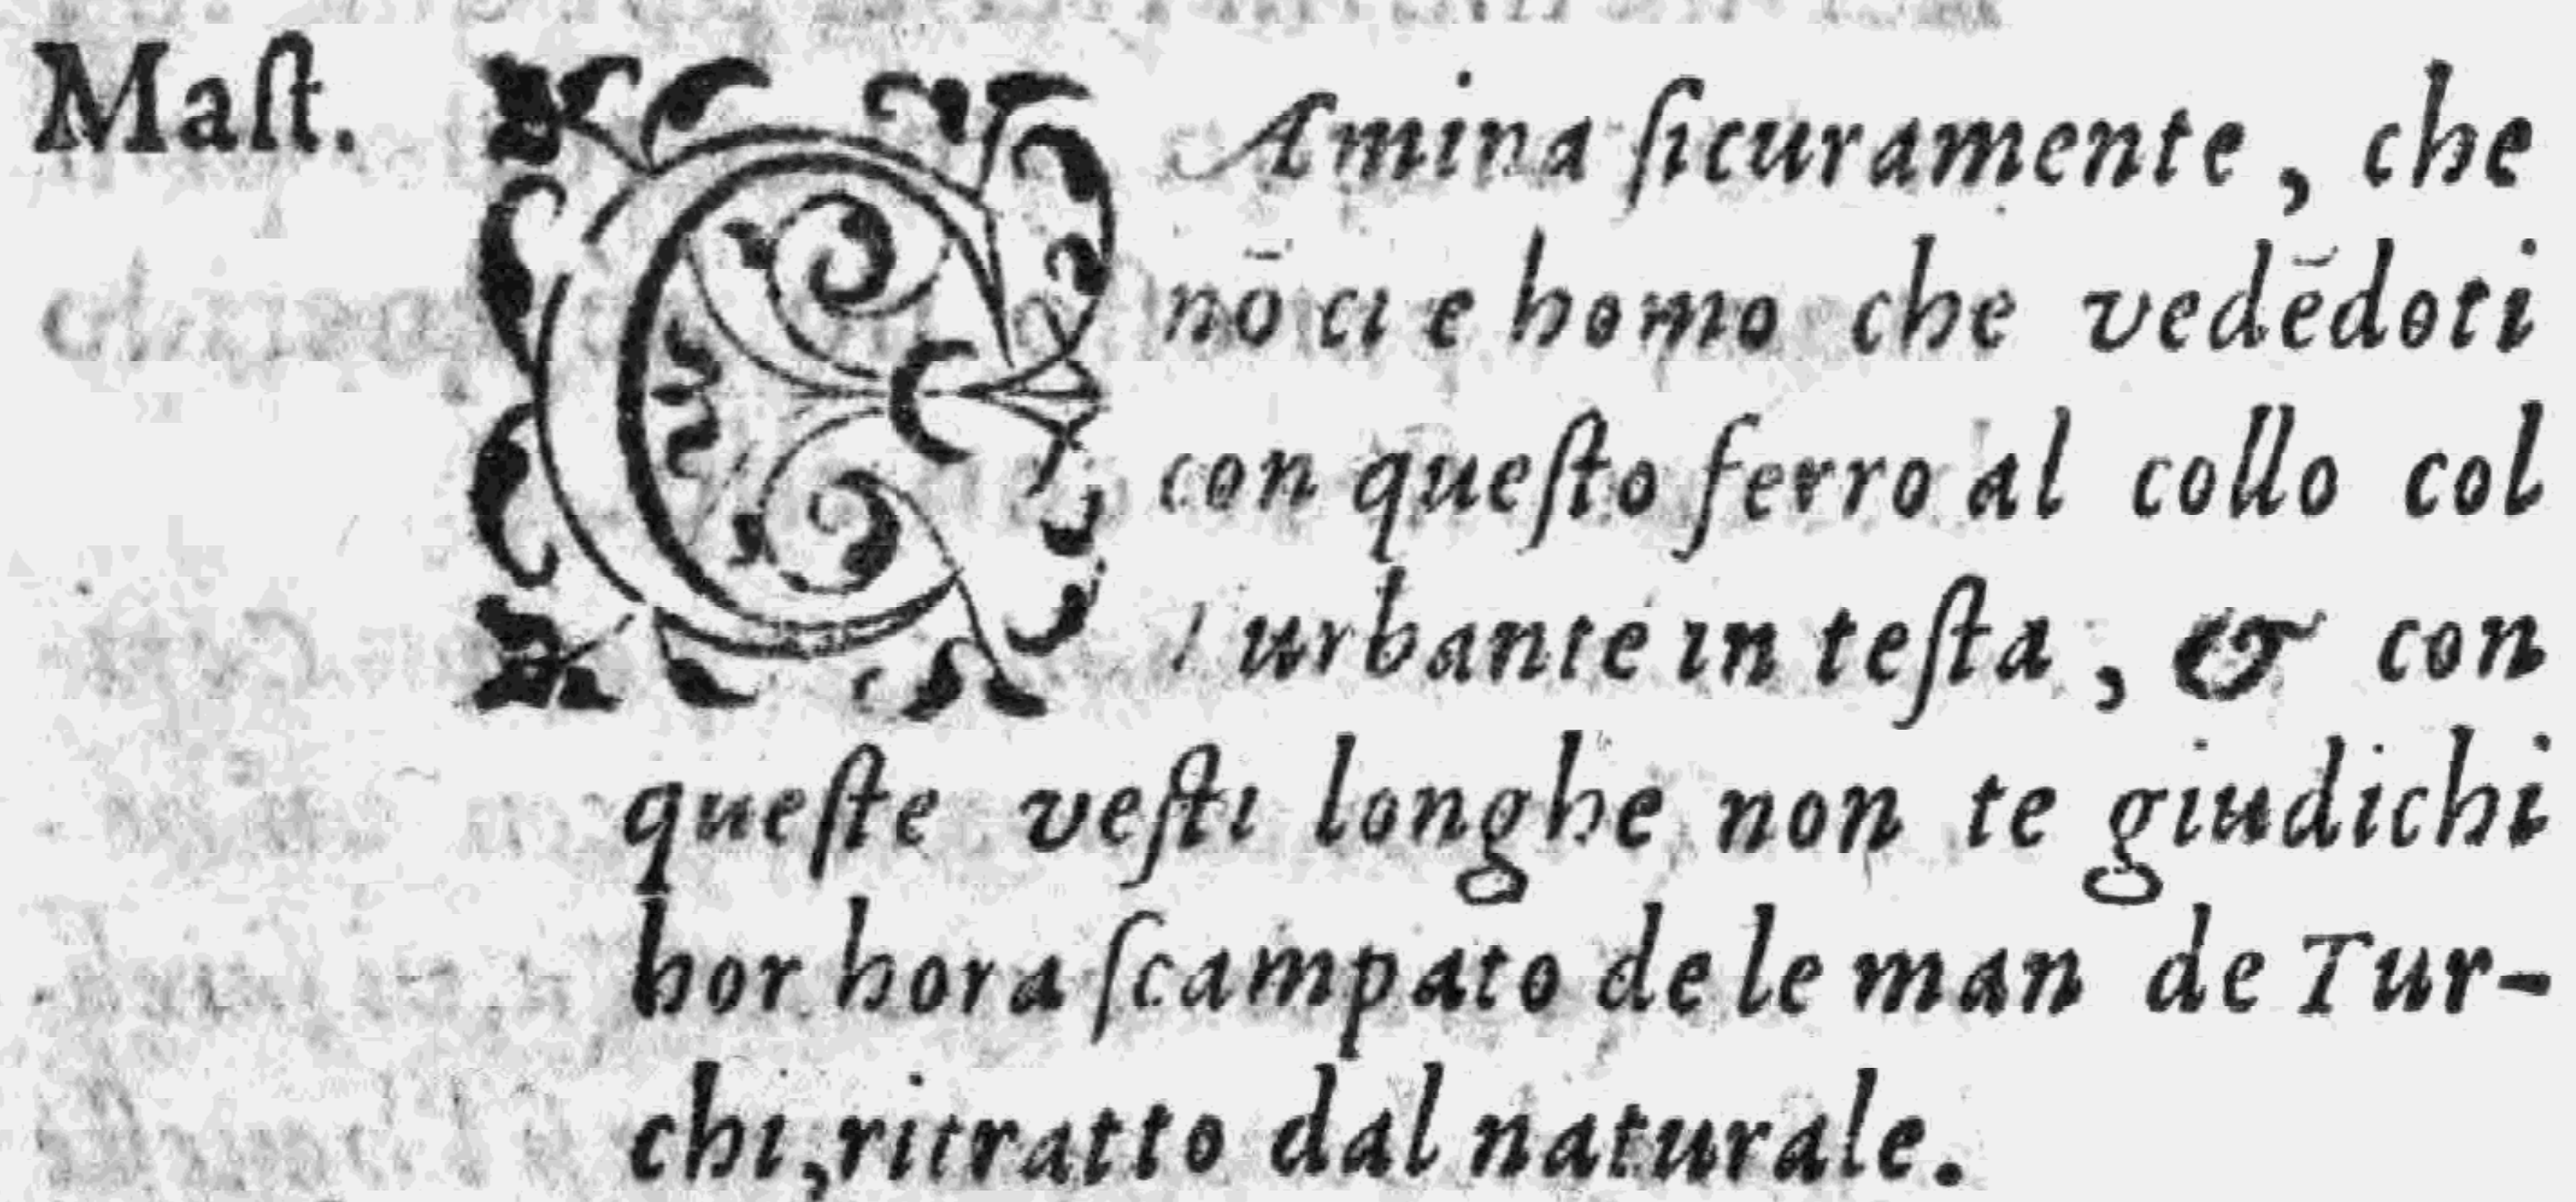 Maſt. CAmina ſicuramente, che
nō ci e homo che vedēdoti
con queſto ferro al collo col
Turbante in teſta, & con
queſte veſti longhe non te giudichi
hor hora ſcampato de le man de Tur-
chi, ritratto dal naturale.